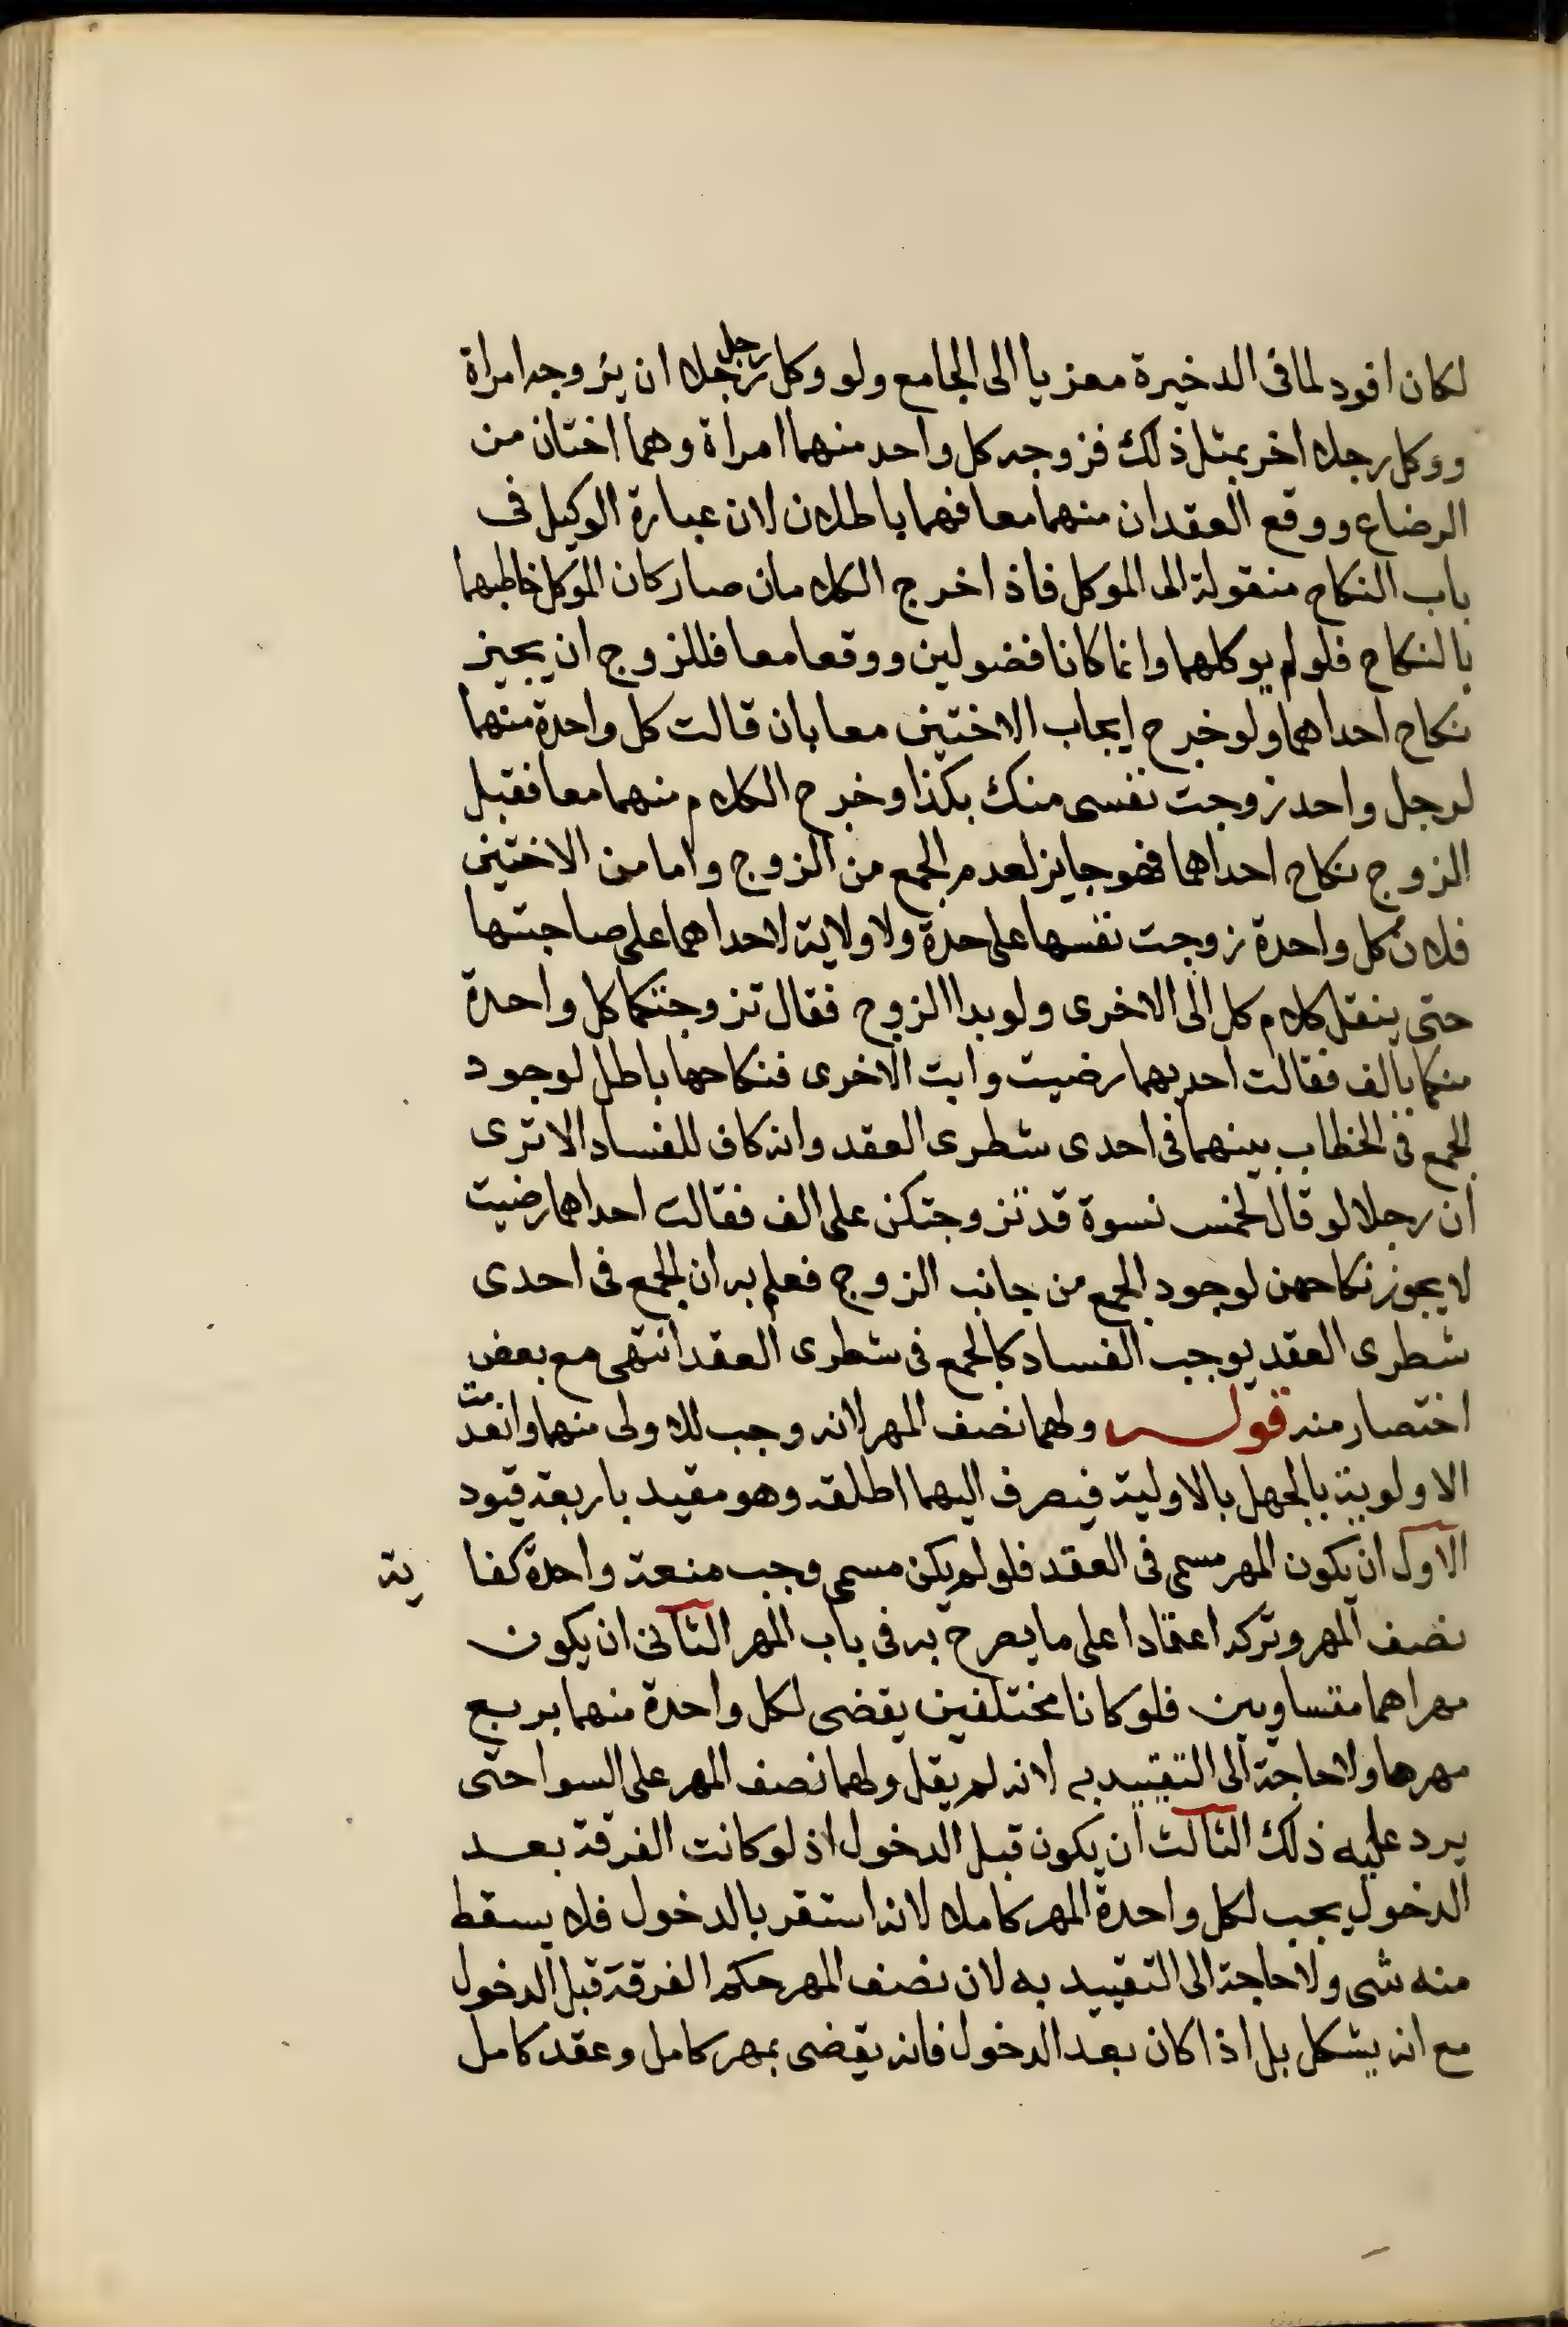 لكان افود لما فى الدخيرة معزيا الى الجامع ولو وكل رجل رجلا ان يزوجه امراة
ووكل رجلا اخر بمثل ذلك فزوجه كل واحد منهما امراة وهما اختان من
الرضاع ووقع العقدان منهما معا فهما باطلان لان عبارة الوكيل فى
باب النكاح منقولة الى الموكل فاذا خرج الكلامان صار كان الموكل خاطبهما
بالنكاح فلو لم يوكلهما وانما كانا فضولين ووقعا معا فللزوج ان يجيز
نكاح احداهما ولو خرج ايجاب الاختين معا بان قالت كل واحدة منهما
لرجل واحد زوجت نفسى منك بكذا وخرج الكلام منهما معا فقبل
الزوج نكاح احداهما فهو جايز لعدم الجمع من الزوج واما من الاختين
فلان كل واحدة زوجت نفسها على حدة ولا ولاية لاحداهما على صاحبتها
حتى ينقل كلام كل الى الاخرى ولو بدا الزوج فقال تزوجتكما كل واحدة
منكما بالف فقالت احديهما رضيت وابت الاخرى فنكاحها باطل لوجود
الجمع فى الخطاب بينهما فى احدى شطرى العقد وانه كاف للفساد الا ترى
ان رجلا لو قال لخمس نسوة قد تزوجتكن على الف فقالت احداهما رضيت
لا يجوز نكاحهن لوجود الجمع من جانب الزوج فعلم به ان الجمع فى احدى
شطرى العقد يوجب الفساد كالجمع فى شطرى العقد انتهى مع بعض
اختصار منه قوله ولهما نصف المهر لانه وجب للاولى منهما وانعدمت
الاولوية بالجهل بالاولية فيصرف اليهما اطلقه وهو مقيد باربعة قيود
الاول ان يكون المهر مسمى فى العقد فلو لم يكن مسمى وجب منعة واحدة كفاية
نصف المهر وتركه اعتمادا على ما يصرح به فى باب المهر الثانى ان يكون
مهراهما متساويين فلو كانا مختلفين يقضى لكل واحدة منهما بربع
مهرها ولا حاجة الى التقييد به لانه لم يقل ولهما نصف المهر على السوا حتى
يرد عليه ذلك الثالث ان يكون قبل الدخول اذ لو كانت الفرقة بعد
الدخول يجب لكل واحدة المهر كاملا لانه استقر بالدخول فلا يسقط
منه شى ولا حاجة الى التقييد به لان نصف المهر حكم الفرقة قبل الدخول
مع انه يشكل بل اذا كان بعد الدخول فانه يقضى بمهر كامل وعقد كامل